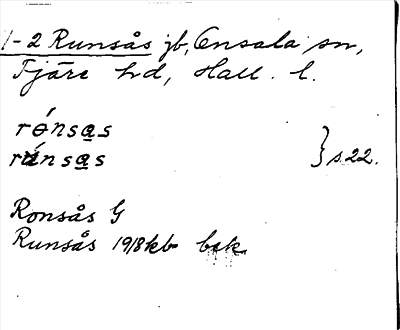 1-2 Runsås jb, Onsala sn,
Fjäre hd, Hall. l.
rónsas
rúnsas } s. 22.
Ronsås G
Runsås 1918 kb bek.